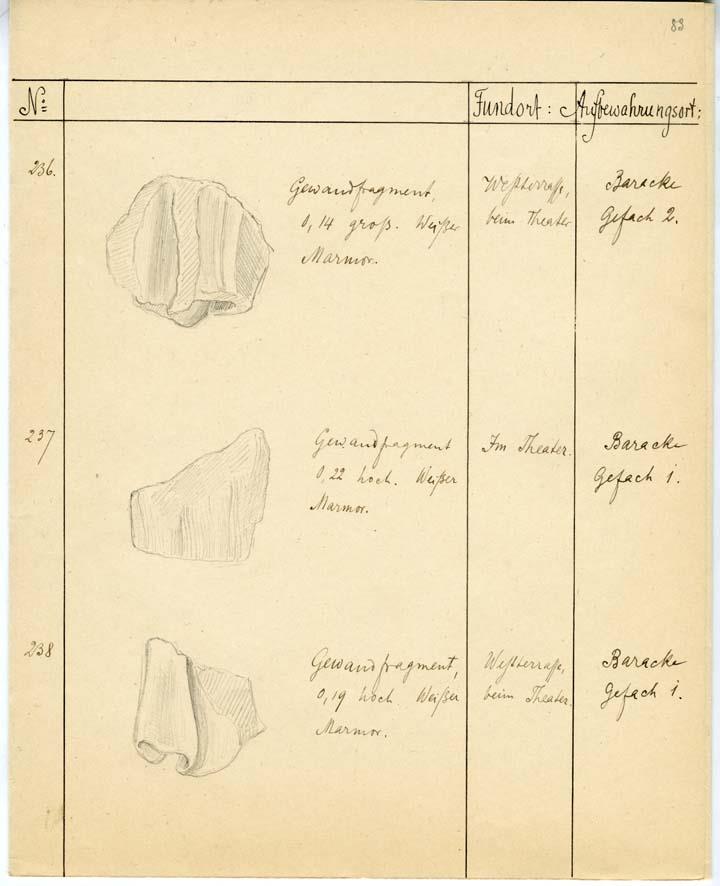 83
No: Fundort: Aufbewahrungsort:
236. Gewandfragment, Westterrasse, Baracke
0,14 groß. Weißer beim Theater Gefach 2.
Marmor.
237 Gewandfragment Im Theater. Baracke
0,22 hoch. Weißer Gefach 1.
Marmor.
238 Gewandfragment, Westterrasse, Baracke
0,19 hoch Weißer beim Theater. Gefach 1.
Marmor.